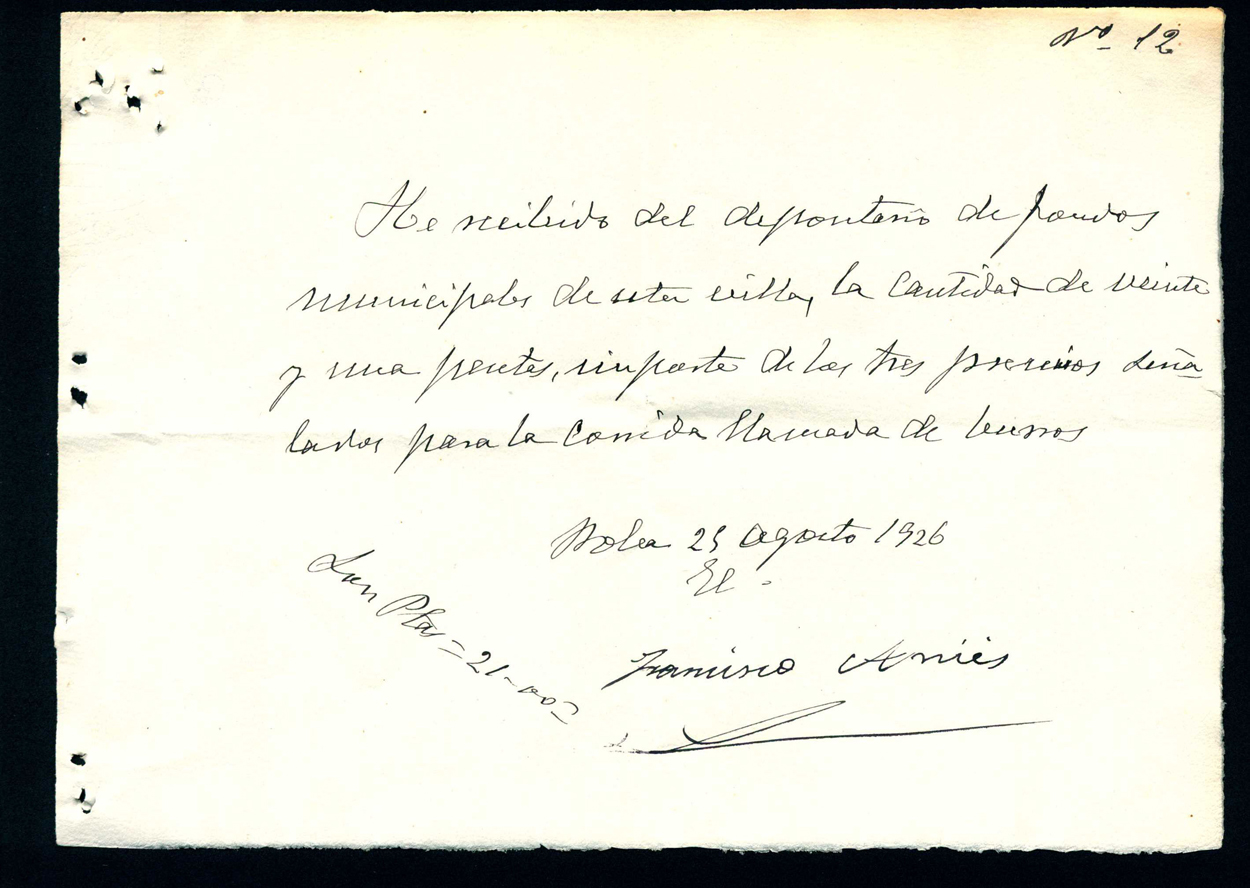 Nº 12
He recibido del depositario de fondos
municipales de esta villa, la cantidad de veinte
y una pesetas, importe de los tres premios seña-
lados para la corrida llamada de burros
Bolea 25 agosto 1926
El -
Son Ptas = 21-00 =
Francisco Arnies